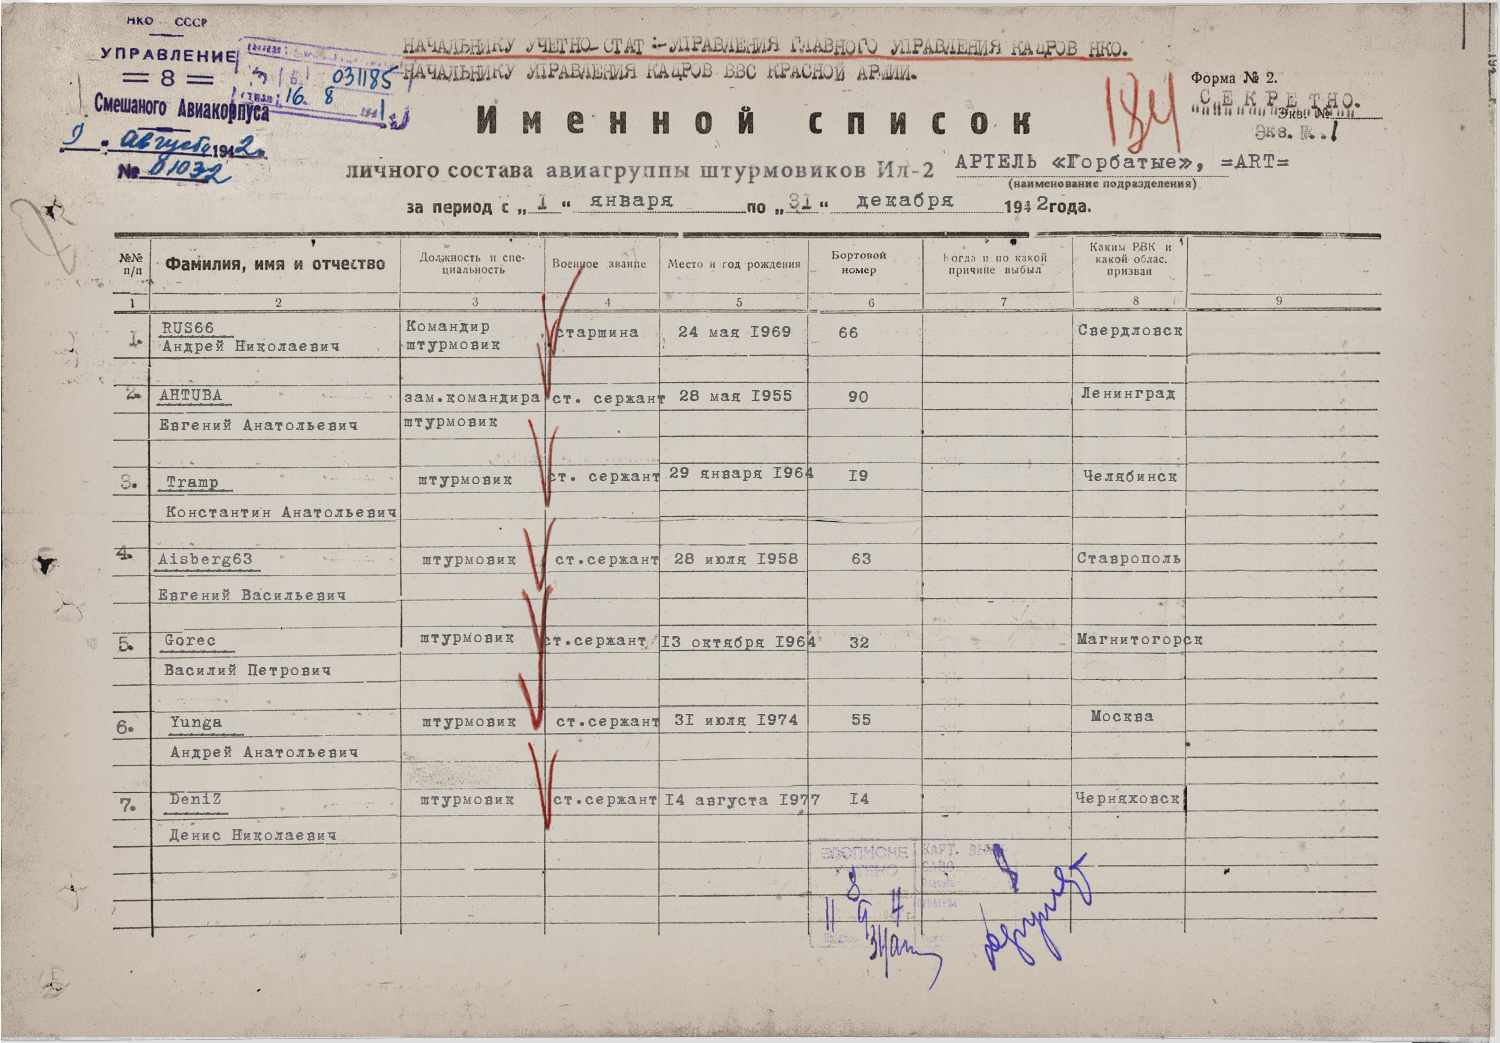 НКО СССР
УПРАВЛЕНИЕ
= 8 =
Смешаного Авиакорпуса
9 " августа 1942 г.
№ 01032
031185
16. 8
НАЧАЛЬНИКУ УЧЕТНО-СТАТ:-УПРАВЛЕНИЯ ГЛАВНОГО УПРАВЛЕНИЯ КАДРОВ НКО.
НАЧАЛЬНИКУ УПРАВЛЕНИЯ КАДРОВ ВВС КРАСНОЙ АРМИИ.
184
Форма № 2.
СЕКРЕТНО.
Экз. №
Экз. №..1
Именной список
личного состава авиагруппы штурмовиков Ил-2 АРТЕЛЬ «Горбатые», =ART=
(наименование подразделения)
за период с „ I “ января по „ 31 “ декабря 1942года.
№№ п/п
Фамилия, имя и отчество
Должность и специальность
Военное звание
Место и год рождения
Бортовой номер
Когда и по какой причине выбыл
Каким РВК и какой облас. призван
1 2 3 4 5 6 7 8 9
1. RUS66 Командир старшина 24 мая I969 66 Свердловск
Андрей Николаевич штурмовик
2. AHTUBA зам.командира ст. сержант 28 мая I955 90 Ленинград
Евгений Анатольевич штурмовик
3. Tramp штурмовик ст. сержант 29 января I964 I9 Челябинск
Константин Анатольевич
4. Aisberg63 штурмовик ст.сержант 28 июля I958 63 Ставрополь
Евгений Васильевич
5. Gorec штурмовик ст.сержант I3 октября I964 32 Магнитогорск
Василий Петрович
6. Yunga штурмовик ст.сержант 3I июля I974 55 Москва
Андрей Анатольевич
7. DeniZ штурмовик ст.сержант I4 августа I977 I4 Черняховск
Денис Николаевич